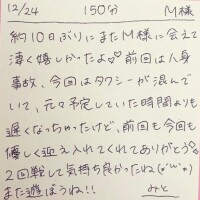 12/24 150分 M様
約10日ぶりにまたM様に会えて
凄く嬉しかったよ♡ 前回は人身
事故、今回はタクシーが混んで
いて、元々予定していた時間よりも
遅くなっちゃったけど、前回も今回も
優しく迎え入れてくれてありがとう♡
2回戦して気持ち良かったね(*´ω`*)
また遊ぼうね!!
みと